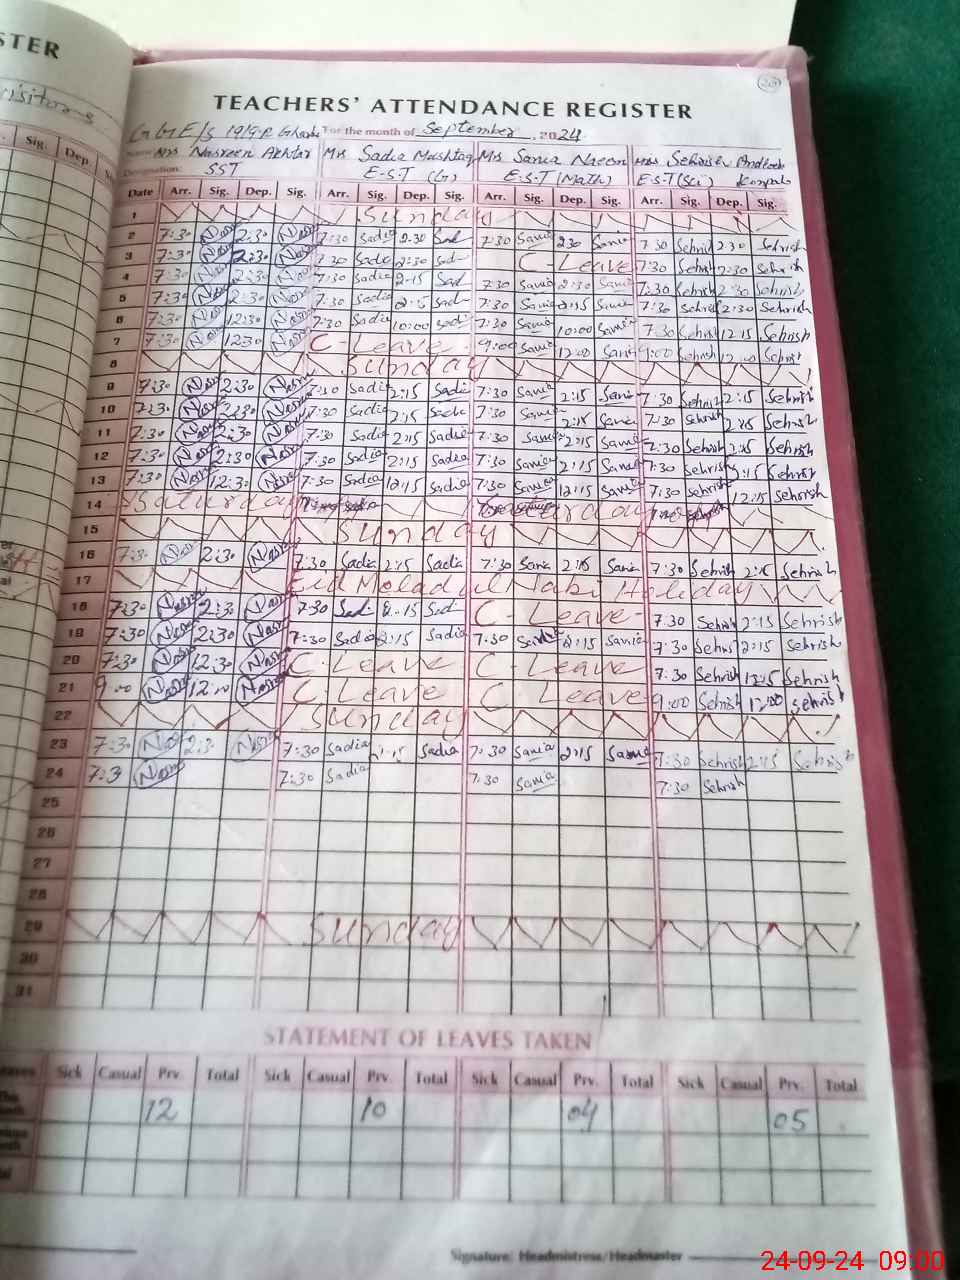 STER
Visitors
Sig. Dep.
20
TEACHERS' ATTENDANCE REGISTER
For the month of September, 2024
Mrs Nasreen Akhtar Mrs Sadia Mushtaq Mrs. Sania Naeem Mrs Sehrish
Designation: SST E.S.T (G) E.S.T (Math) E.S.T (Sci)
Date Arr. Sig. Dep. Sig. Arr. Sig. Dep. Sig. Arr. Sig. Dep. Sig. Arr. Sig. Dep. Sig.
1 Sunday
2 7:30 2:30 7:30 Sadia 2:30 Sad 7:30 Sania 230 Sania 7:30 Sehrish 2:30 Sehrish
3 7:30 2:30 7:30 Sadia 2:30 Sad C-Leave 7:30 Sehrish 2:30 Sehrish
4 7:30 2:30 7:30 Sadia 2-15 Sad 7:30 Sania 2:30 Sania 7:30 Sehrish 2:30 Sehrish
5 7:30 2:30 7:30 Sadia 2:15 Sad 7:30 Sania 2:15 Sania 7:30 Sehrish 2:30 Sehrish
6 7:30 12:30 7:30 Sadia 10:00 Sadi 7:30 Sania 10:00 Sania 7:30 Sehrish 12:15 Sehrish
7 7:30 12:30 C-Leave 9:00 Sania 12:00 Sania 9:00 Sehrish 12:00 Sehrish
8 Sunday
9 7:30 2:30 7:30 Sadia 2:15 Sadia 7:30 Sania 2:15 Sania 7:30 Sehrish 2:15 Sehrish
10 7:30 2:30 7:30 Sadia 2:15 Sadia 7:30 Sania 2:15 Sania 7:30 Sehrish 2:15 Sehrish
11 7:30 2:30 7:30 Sadia 2:15 Sadia 7:30 Sania 2:15 Sania 7:30 Sehrish 2:15 Sehrish
12 7:30 2:30 7:30 Sadia 2:15 Sadia 7:30 Sania 2:15 Sania 7:30 Sehrish 2:15 Sehrish
13 7:30 12:30 7:30 Sadia 12:15 Sadia 7:30 Sania 12:15 Sania 7:30 Sehrish 12:15 Sehrish
14 Saturday
15 Sunday
16 7:30 2:30 Nasr 7:30 Sadia 2:15 Sadia 7:30 Sania 2:15 Sania 7:30 Sehrish 2:15 Sehrish
17 Eid Meladul Nabi Holiday
18 7:30 2:30 7:30 Sadi 2-15 Sadi C-Leave 7:30 Sehrish 2:15 Sehrish
19 7:30 2:30 7:30 Sadia 2:15 Sadia 7:30 Sania 2:15 Sania 7:30 Sehrish 2:15 Sehrish
20 7:30 12:30 C-Leave C-Leave 7:30 Sehrish 12:15 Sehrish
21 9:00 12:00 C-Leave C-Leave 9:00 Sehrish 12:00 Sehrish
22 Sunday
23 7:30 2:30 7:30 Sadia 2:15 Sadia 7:30 Sania 2:15 Sania 7:30 Sehrish 2:15 Sehrish
24 7:3 7:30 Sadia 7:30 Sania 7:30 Sehrish
25
26
27
28
29 Sunday
30
31
STATEMENT OF LEAVES TAKEN
Sick Casual Prv. Total Sick Casual Prv. Total Sick Casual Prv. Total Sick Casual Prv. Total
12 10 04 05
Signature: Headmistress/Headmaster
24-09-24 09:00